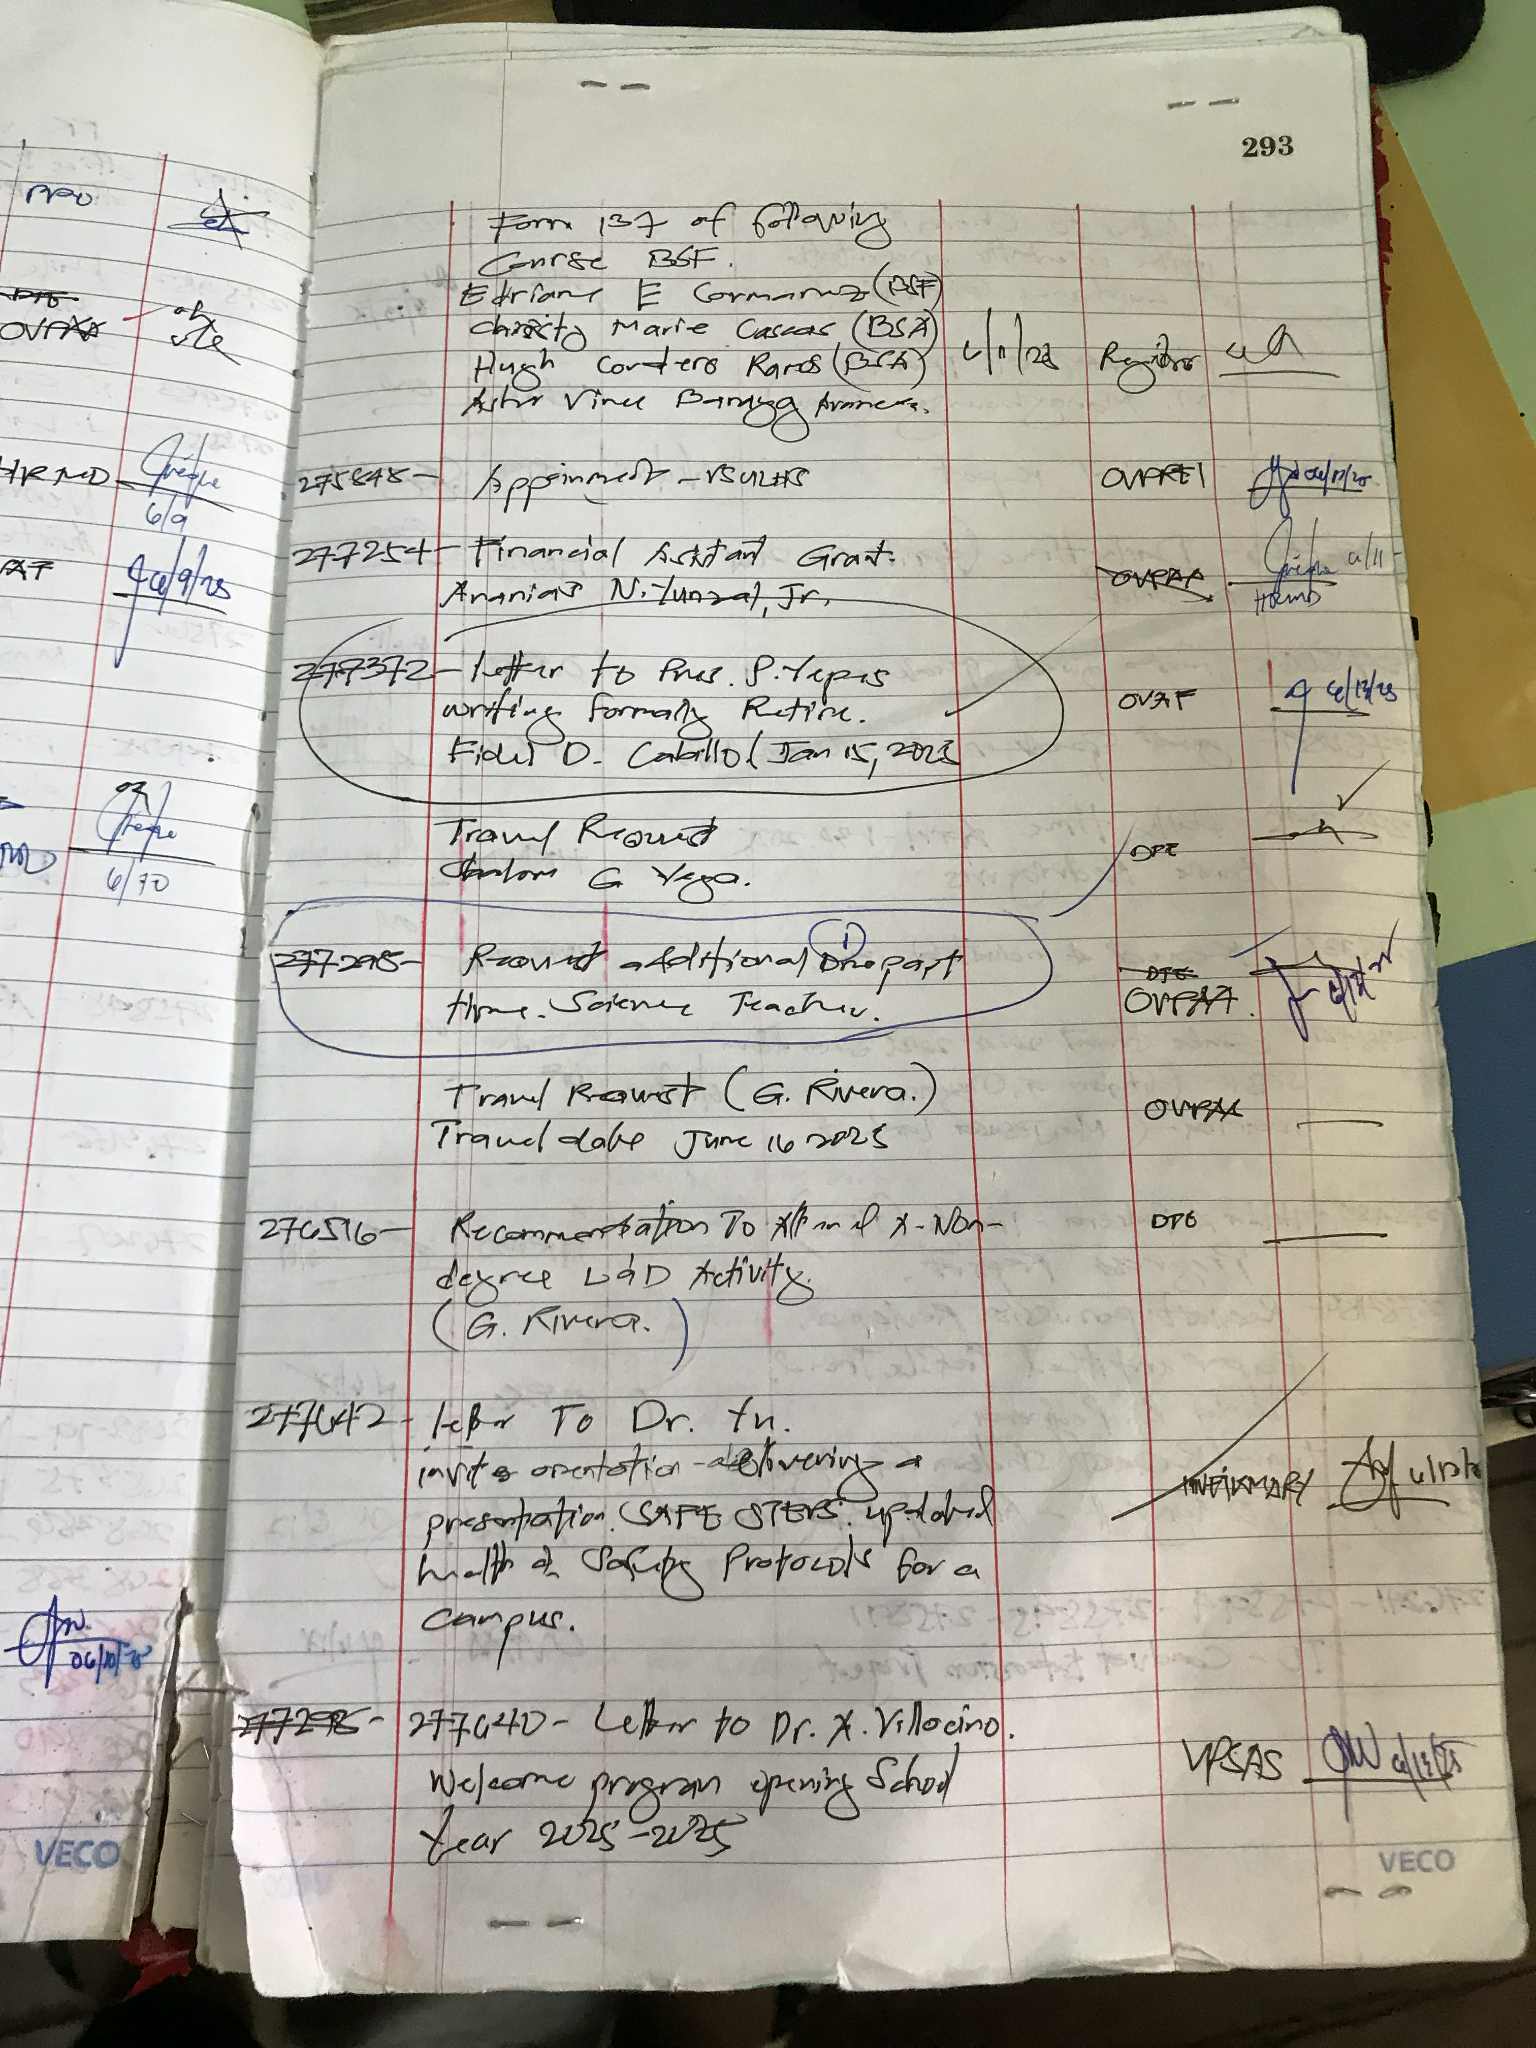 293
Form 137 of following
Course BSF.
Edriane E (BSF)
Marie Cascas (BSA)
Hugh Ramos (BSA) 6/11/25 Registrar
Vince
275848- Appoinment - VSULHS OVPREI
277254 - Financial Asstant Grant. OVPAA 6/11
Ananias N. Yunzal, Jr. HRMD
277372 - Letter to Pres. P. Yepes
writing formally Retire. OVPAF 6/13/25
Fidel D. Cabillo (Jan 15, 2025
Travel Request
G Vega. DPE
277295- Request additional One part DPE
time. Science Teacher. OVPAA
Travel Request (G. Rivera.) OVPAA
Travel date June 16 2025
276516 - Recommendation To Attend A-Non- DPE
degree L&D Activity.
(G. Rivera.)
277642 - letter To Dr. Yu.
invite orentation - delivering a INFIRMARY
presentation. SAFE STEPS: updated
health & Safety Protocols for a
campus.
277295- 277640 - Letter to Dr. A. Villocino.
Welcome program opening School VPSAS 6/13/25
Year 2025-2025
VECO
PPO
OVPAA
HRMD
6/9
6/9/25
6/10
06/10/25
VECO